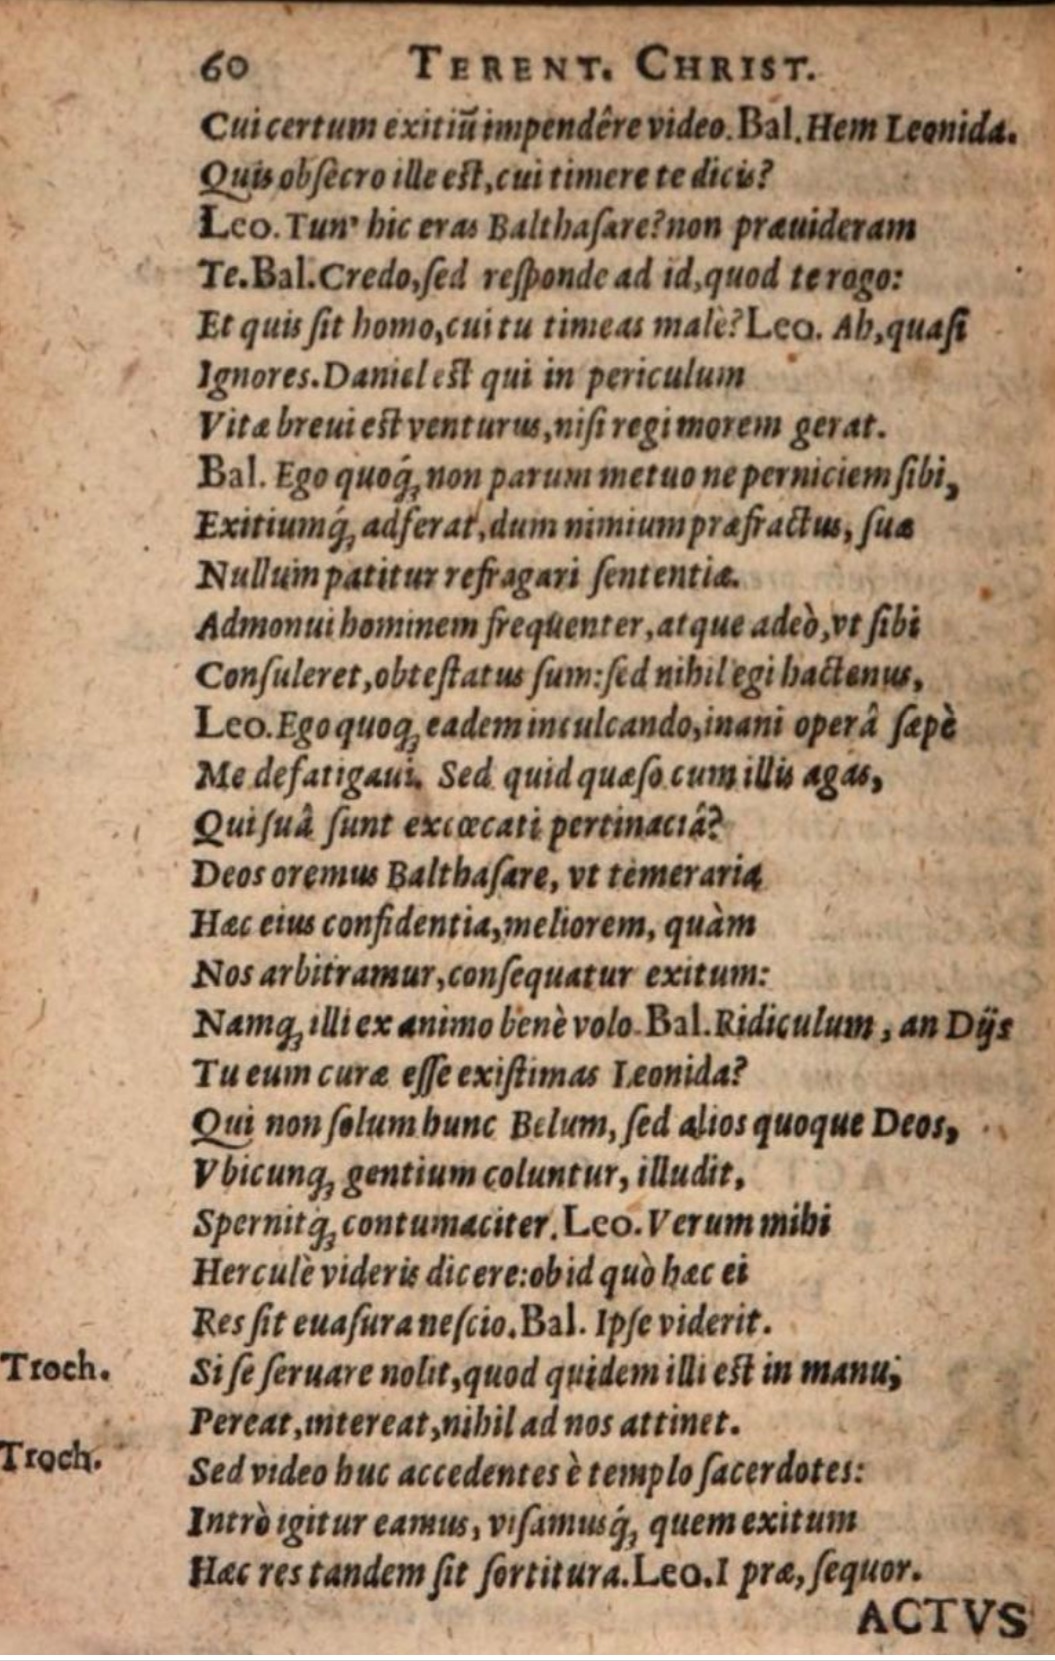 60 TERENT. CHRIST.
Cui certum exitiũ impendêre video. Bal. Hem Leonida.
Quis obſecro ille eſt, cui timere te dicis?
Leo. Tun' hic eras Balthaſare? non præuideram
Te. Bal. Credo, ſed reſponde ad id, quod te rogo:
Et quis ſit homo, cui tu timeas malè? Leo. Ah, quaſi
Ignores. Daniel eſt qui in periculum
Vitæ breui eſt venturus, niſi regi morem gerat.
Bal. Ego quoq́;, non parum metuo ne perniciem ſibi,
Exitiumq́; adferat, dum nimium præfractus, ſuæ
Nullum patitur refragari ſententiæ.
Admonui hominem frequenter, atque adeò, vt ſibi
Conſuleret, obteſtatus ſum: ſed nihil egi hactenus,
Leo. Ego quoq; eadem inculcando, inani operâ ſæpè
Me defatigaui. Sed quid quæſo cum illis agas,
Qui ſuâ ſunt excœcati pertinaciâ?
Deos oremus Balthaſare, vt temeraria
Hæc eius confidentia, meliorem, quàm
Nos arbitramur, conſequatur exitum:
Namq; illi ex animo benè volo. Bal. Ridiculum, an Dijs
Tu eum curæ eſſe exiſtimas Leonida?
Qui non ſolum hunc Belum, ſed alios quoque Deos,
Vbicunq; gentium coluntur, illudit,
Spernitq́; contumaciter. Leo. Verum mihi
Herculè videris dicere: ob id quò hæc ei
Res ſit euaſura neſcio. Bal. Ipſe viderit.
Troch. Si ſe ſeruare nolit, quod quidem illi eſt in manu;
Pereat, intereat, nihil ad nos attinet.
Troch. Sed video huc accedentes è templo ſacerdotes:
Intrò igitur eamus, viſamusq́; quem exitum
Hæc res tandem ſit ſortitura. Leo. I præ, ſequor.
ACTVS